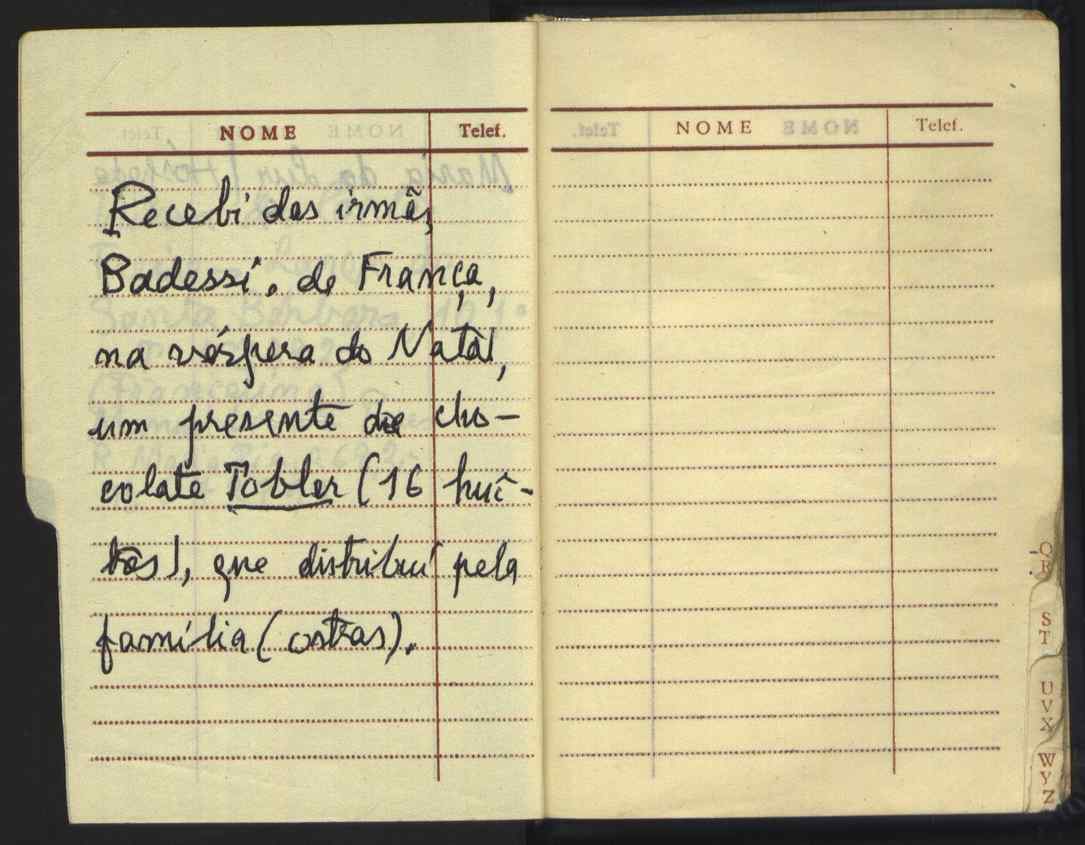 NOME Telef.
Recebi das irmãs
Badessi, de França,
na véspera do Natal,
um presente de cho-
colate Tobler (16
que distribuí pela
família (ostras).
NOME Telef.
Q
R
S
T
U
V
X
W
Y
Z